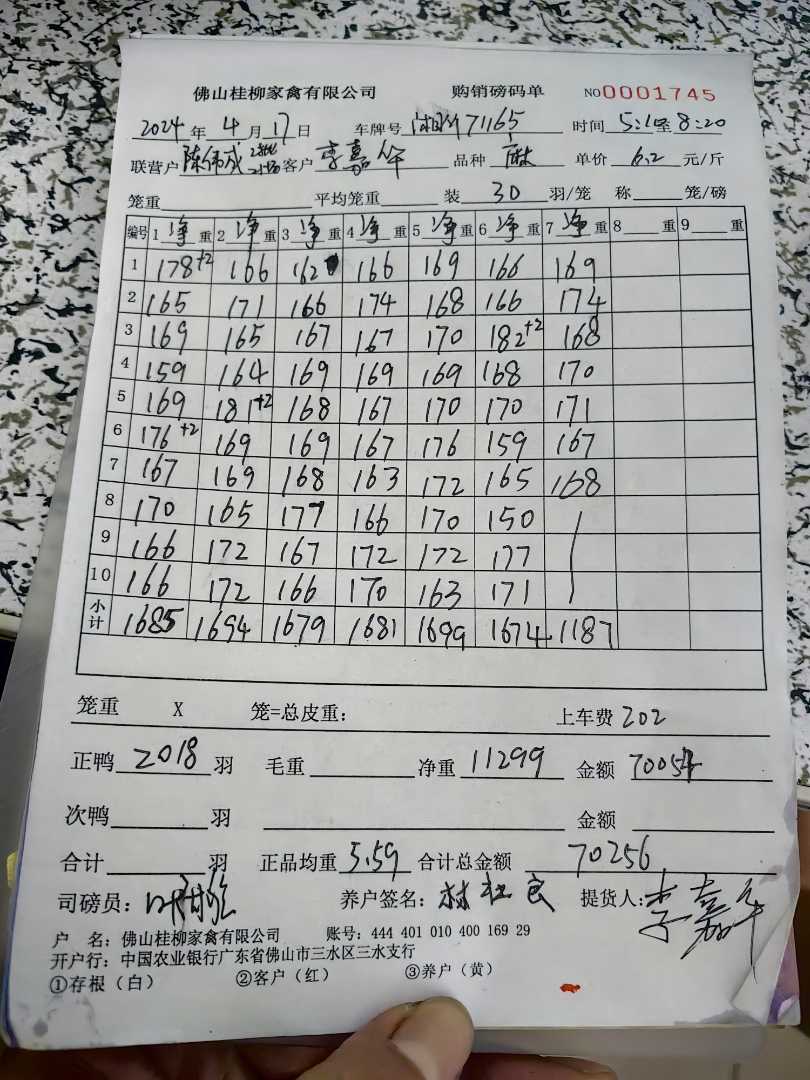 佛山桂柳家禽有限公司 购销磅码单 NO0001745
2024年 4月 17日 车牌号 71165 时间 5:10至8:20
联营户 陈伟成 客户 李嘉华 品种 麻 单价 6.2 元/斤
笼重 平均笼重 装 30 羽/笼 称 笼/磅
编号 1 净 重 2 净 重 3 净 重 4 净 重 5 净 重 6 净 重 7 净 重 8 重 9 重
1 178+2 166 162 166 169 166 169
2 165 171 166 174 168 166 174
3 169 165 167 167 170 182+2 168
4 159 164 169 169 169 168 170
5 169 181+2 168 167 170 170 171
6 176+2 169 169 167 176 159 167
7 167 169 168 163 172 165 168
8 170 165 177 166 170 150
9 166 172 167 172 172 177
10 166 172 166 170 163 171
小计 1685 1694 1679 1681 1699 1674 1187
笼重 X 笼=总皮重: 上车费 202
正鸭 2018 羽 毛重 净重 11299 金额 70054
次鸭 羽 金额
合计 羽 正品均重 5.59 合计总金额 70256
司磅员: 养户签名: 林 良 提货人: 李嘉华
户 名: 佛山桂柳家禽有限公司 账号: 444 401 010 400 169 29
开户行: 中国农业银行广东省佛山市三水区三水支行
①存根（白） ②客户（红） ③养户（黄）